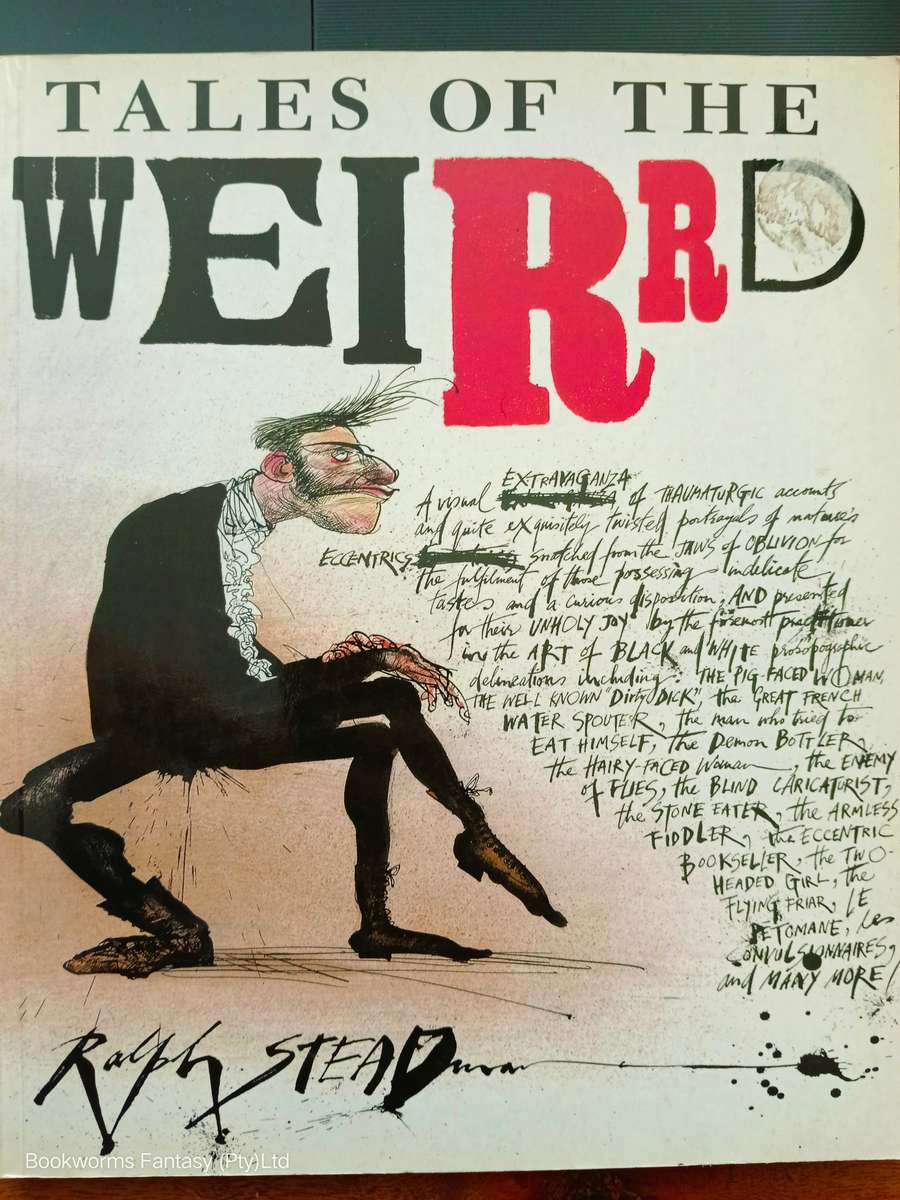 TALES OF THE
WEIRRD
A visual EXTRAVAGANZA of THAUMATURGIC accounts
and quite exquisitely twisted portrayals of nature's
ECCENTRICS snatched from the JAWS of OBLIVION for
the fulfilment of those possessing indelicate
tastes and a curious disposition, AND presented
for their UNHOLY JOY by the foremost practitioner
in the ART of BLACK and WHITE prosopographic
delineations including: THE PIG-FACED WOMAN,
THE WELL KNOWN "Dirty DICK", the GREAT FRENCH
WATER SPOUTER, the man who tried to
EAT HIMSELF, the Demon BOTTLER,
the HAIRY-FACED Woman, the ENEMY
of FLIES, the BLIND CARICATURIST,
the STONE EATER, the ARMLESS
FIDDLER, the ECCENTRIC
BOOKSELLER, the TWO-
HEADED GIRL, the
FLYING FRIAR, LE
PETOMANE, Les
CONVULSIONNAIRES,
and MANY MORE
Ralph STEADman
Bookworms Fantasy (Pty)Ltd